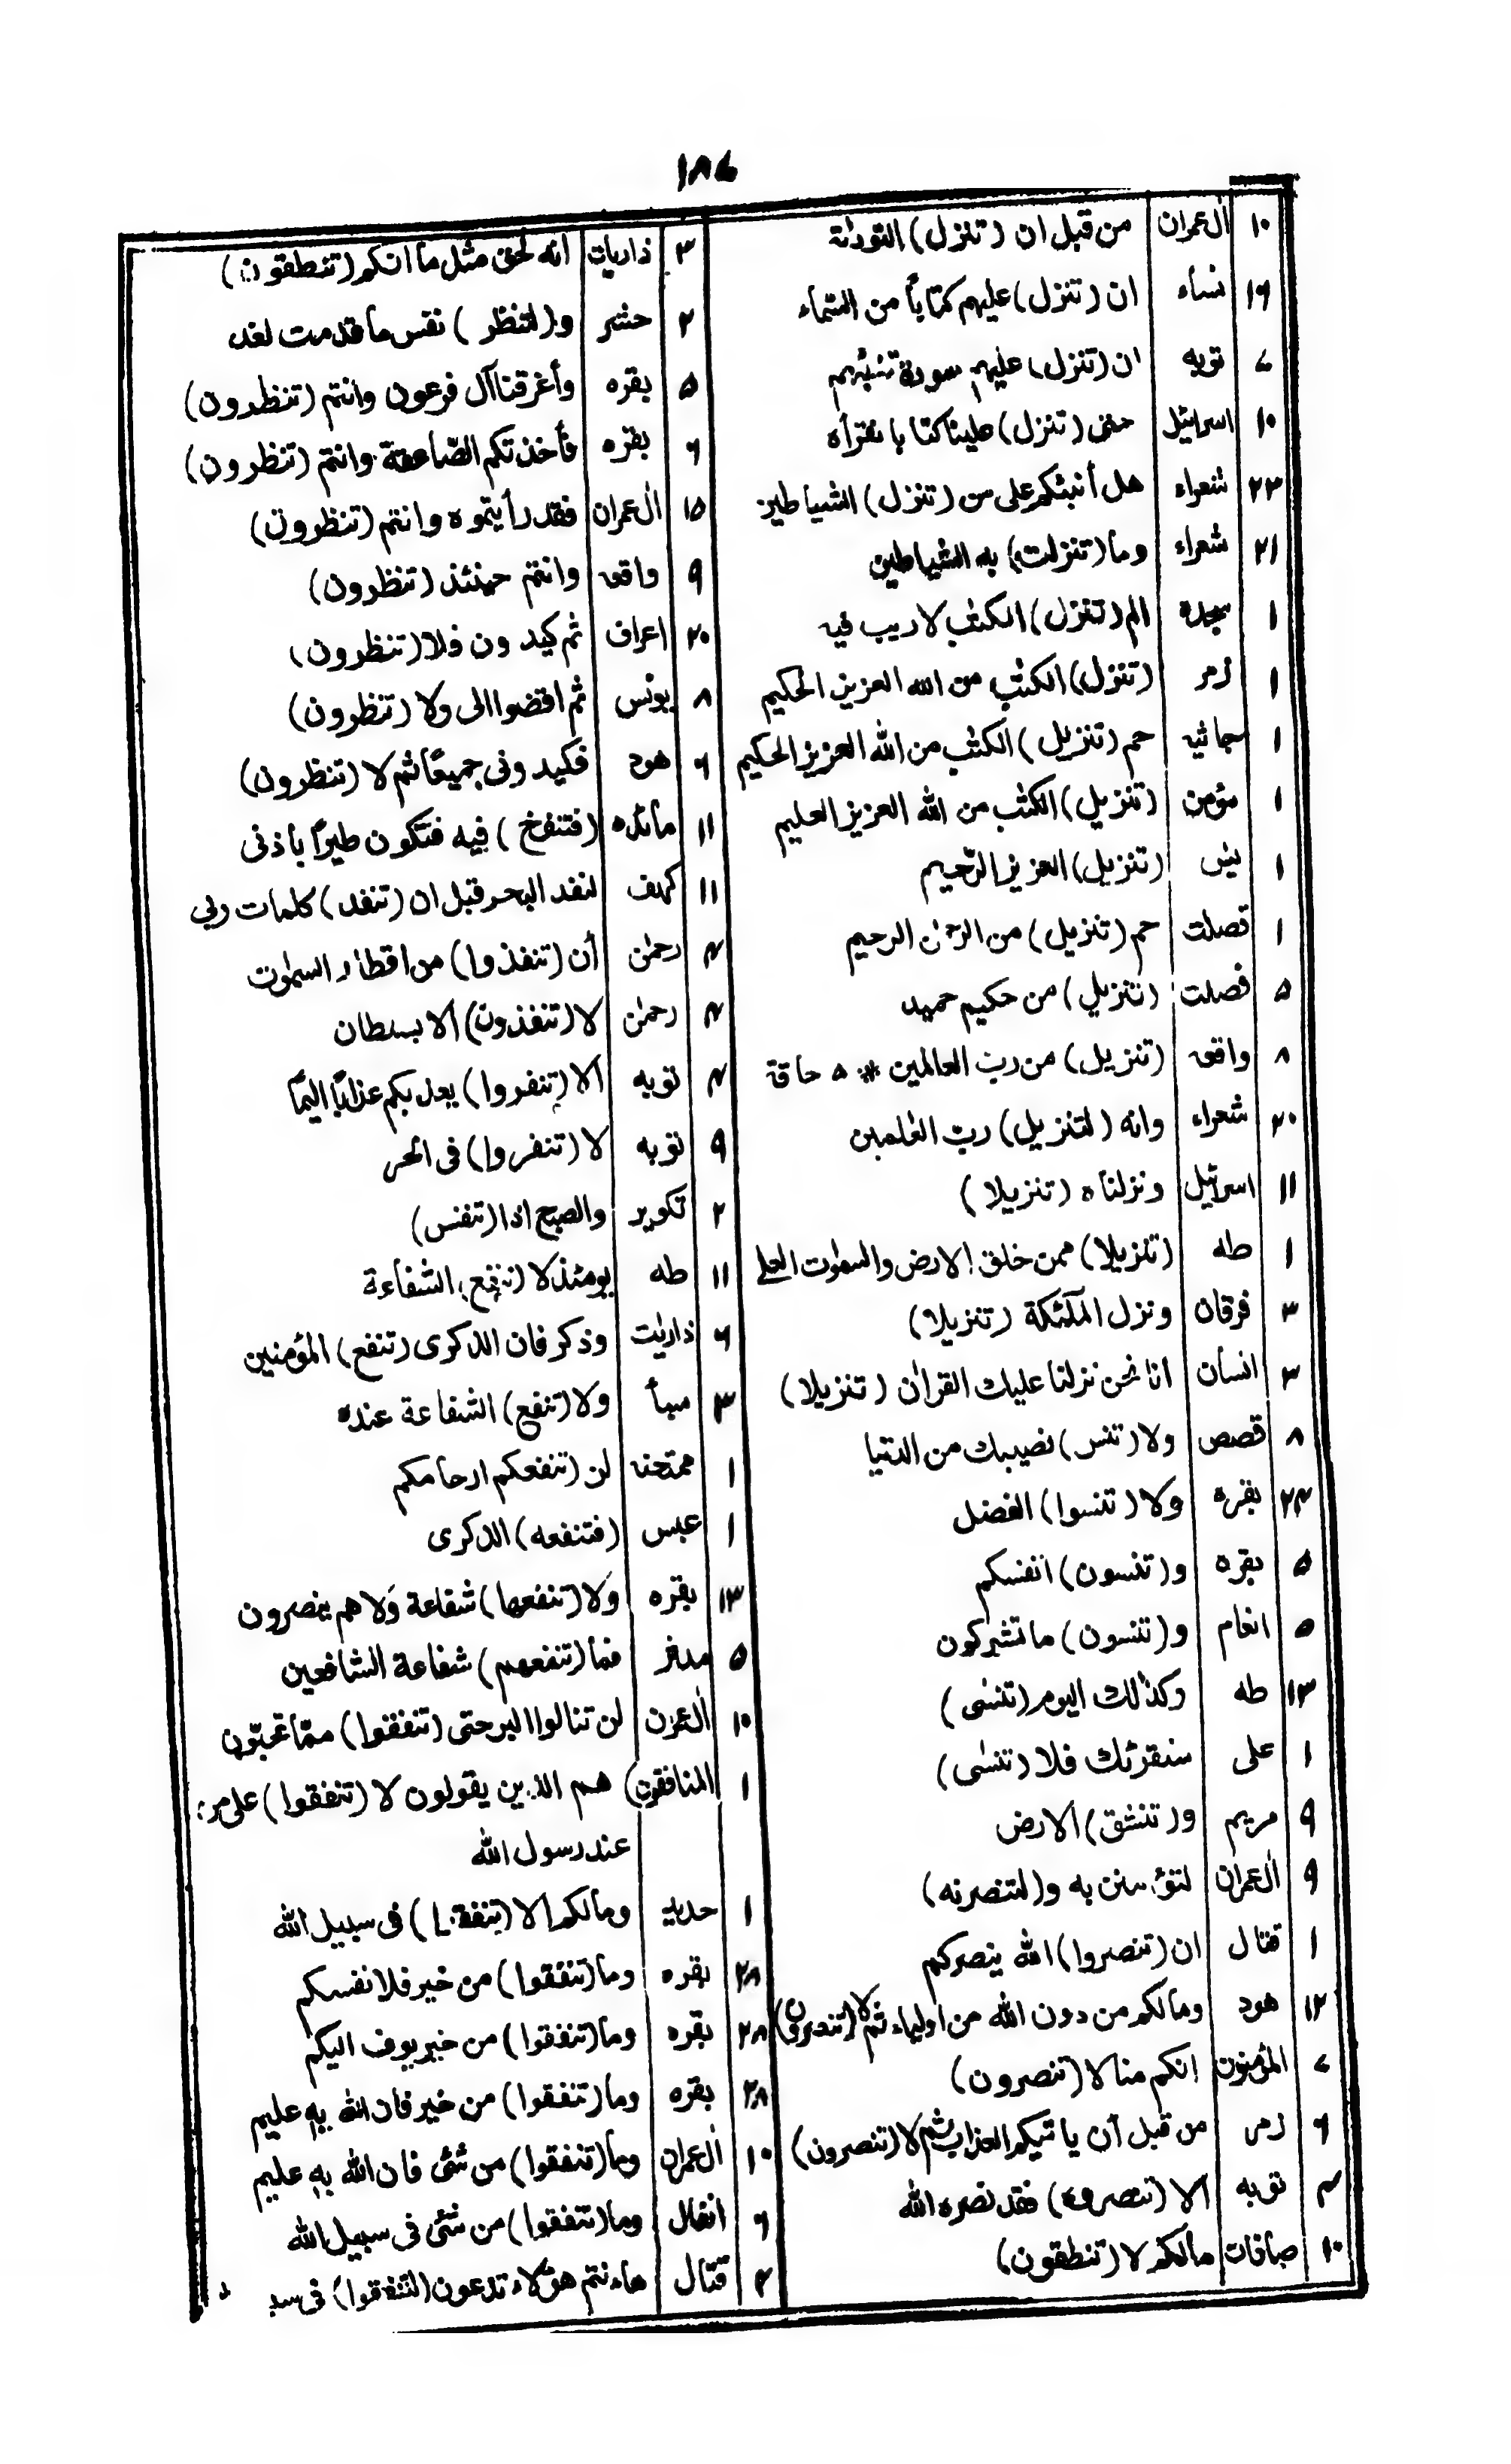 ١٨٧
١٠ اٰل عمران من قبل ان (تنزل) التورٰىة
١٦ نساء ان (تنزل) عليهم كتاباً من السّماء
٧ توبه ان (تنزل) عليهم سورة تنبّئهم
١٠ اسرائيل حتى (تنزل) علينا كتابا نقرأه
٢٣ شعراء هل أنبئكم على من (تنزل) الشياطين
٢١ شعراء وما (تنزلت) به الشياطين
١ سجده الم (تنزل) الكتٰب لا ريب فيه
١ زمر (تنزل) الكتٰب من الله العزيز الحكيم
١ جاثيه حم (تنزيل) الكتٰب من الله العزيز الحكيم
١ مؤمن (تنزيل) الكتٰب من الله العزيز العليم
١ يٰس (تنزيل) العزيز الرّحيم
١ فصلت حم (تنزيل) من الرحمٰن الرحيم
٥ فصلت (تنزيل) من حكيم حميد
٨ واقعه (تنزيل) من رب العالمين * ٥ حاقة
٢٠ شعراء وانه (لتنزيل) ربّ العٰلمين
١١ اسرائيل ونزلناه (تنزيلا)
١ طه (تنزيلا) ممن خلق الارض والسمٰوت العلے
٣ فرقان ونزل الملٰئكة (تنزيلا)
٣ انسان انا نحن نزلنا عليك القراٰن (تنزيلا)
٨ قصص ولا (تنس) نصيبك من الدّنيا
٢٤ بقره ولا (تنسوا) الفضل
٥ بقره و(تنسون) انفسكم
٥ انعام و(تنسون) ما تشركون
١٣ طه وكذٰلك اليوم (تنسٰى)
١ على سنقرئك فلا (تنسٰى)
٩ مريم و(تنشق) الارض
٩ اٰل عمران لتؤمنن به و(لتنصرنه)
١ قتال ان (تنصروا) الله ينصركم
١٢ هود ومالكم من دون الله من اولياء ثم لا (تنصرون)
٧ المؤمنون انكم منا لا (تنصرون)
٦ زمر من قبل أن ياتيكم العذاب ثم لا (تنصرون)
٤ توبه الا (تنصروه) فقد نصره الله
١٠ صافات مالكم لا (تنطقون)
٣ ذاريات انه لحق مثل ما انكم (تنطقون)
٢ حشر و (لتنظر) نفس ما قدمت لغد
٥ بقره وأغرقنا آل فرعون وانتم (تنظرون)
٦ بقره فأخذتكم الصّاعقة وانتم (تنظرون)
١٥ اٰل عمران فقد رأيتموه وانتم (تنظرون)
٩ واقعه وانتم حينئذ (تنظرون)
٢٠ اعراف ثم كيدون فلا (تنظرون)
٨ يونس ثم اقضوا الى ولا (تنظرون)
٦ هود فكيدونى جميعًا ثم لا (تنظرون)
١١ مائده (فتنفخ) فيه فتكون طيراً باذنى
١١ كهف لنفد البحر قبل ان (تنفد) كلمات ربى
٤ رحمٰن أن (تنفذوا) من اقطار السمٰوت
٤ رحمٰن لا (تنفذون) الا بسلطان
٤ توبه الا (تنفروا) يعذبكم عذابًا اليمًا
٩ توبه لا (تنفروا) فى الحر
٢ تكوير والصبح اذا (تنفس)
١١ طه يومئذ لا (تنفع) الشفاعة
٦ ذاريٰت وذكر فان الذكرى (تنفع) المؤمنين
٣ سبأ ولا (تنفع) الشفاعة عنده
١ ممتحنه لن (تنفعكم ارحامكم
١ عبس (فتنفعه) الذكرى
١٣ بقره ولا (تنفعها) شفاعة ولاهم ينصرون
٥ مدثر فما (تنفعهم) شفاعة الشافعين
١٠ اٰل عمرٰن لن تنالوا البر حتى (تنفقوا) ممّا تحبّون
١ المنافقون) هم الذين يقولون لا (تنفقوا) على من
عند رسول الله
١ حديد ومالكم الا (تنفقوا) فى سبيل الله
٢٨ بقره وما (تنفقوا) من خير فلانفسكم
٢٨ بقره وما (تنفقوا) من خير يوف اليكم
٢٨ بقره وما (تنفقوا) من خير فان الله به عليم
١٠ اٰل عمران وما (تنفقوا) من شئ فان الله به عليم
٦ انفال وما (تنفقوا) من شئ فى سبيل الله
٢ قتال هاءنتم هؤلاء تدعون (لتنفقوا) فى سبـ